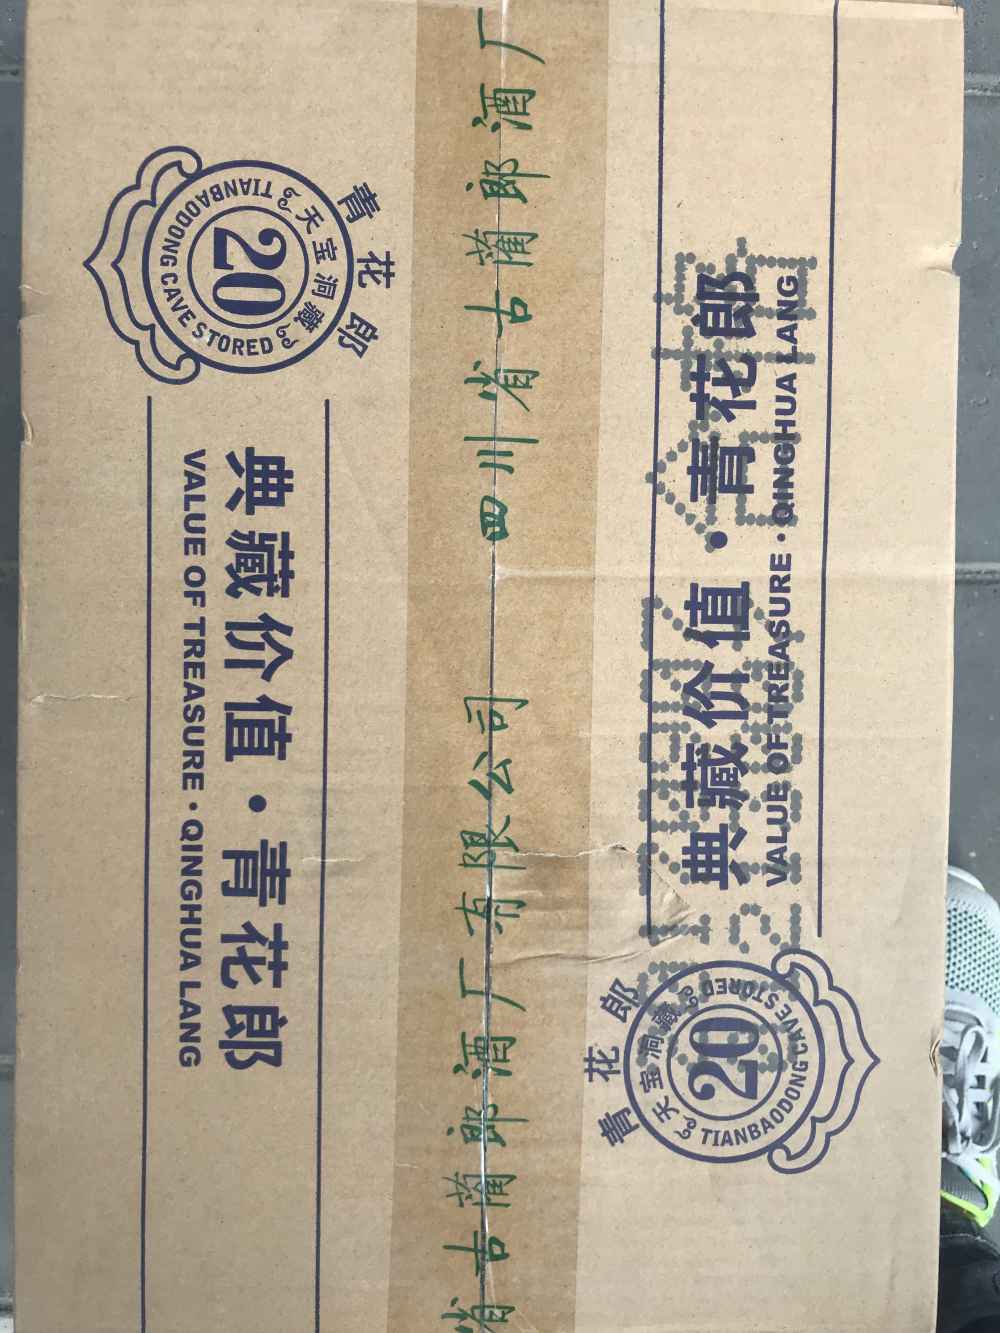 青花郎
天宝洞藏
20
TIANBAODONG CAVE STORED
典藏价值·青花郎
VALUE OF TREASURE·QINGHUA LANG
省古蔺郎酒厂有限公司 四川省古蔺郎酒厂
典藏价值·青花郎
VALUE OF TREASURE·QINGHUA LANG
青花郎
天宝洞藏
20
TIANBAODONG CAVE STORED